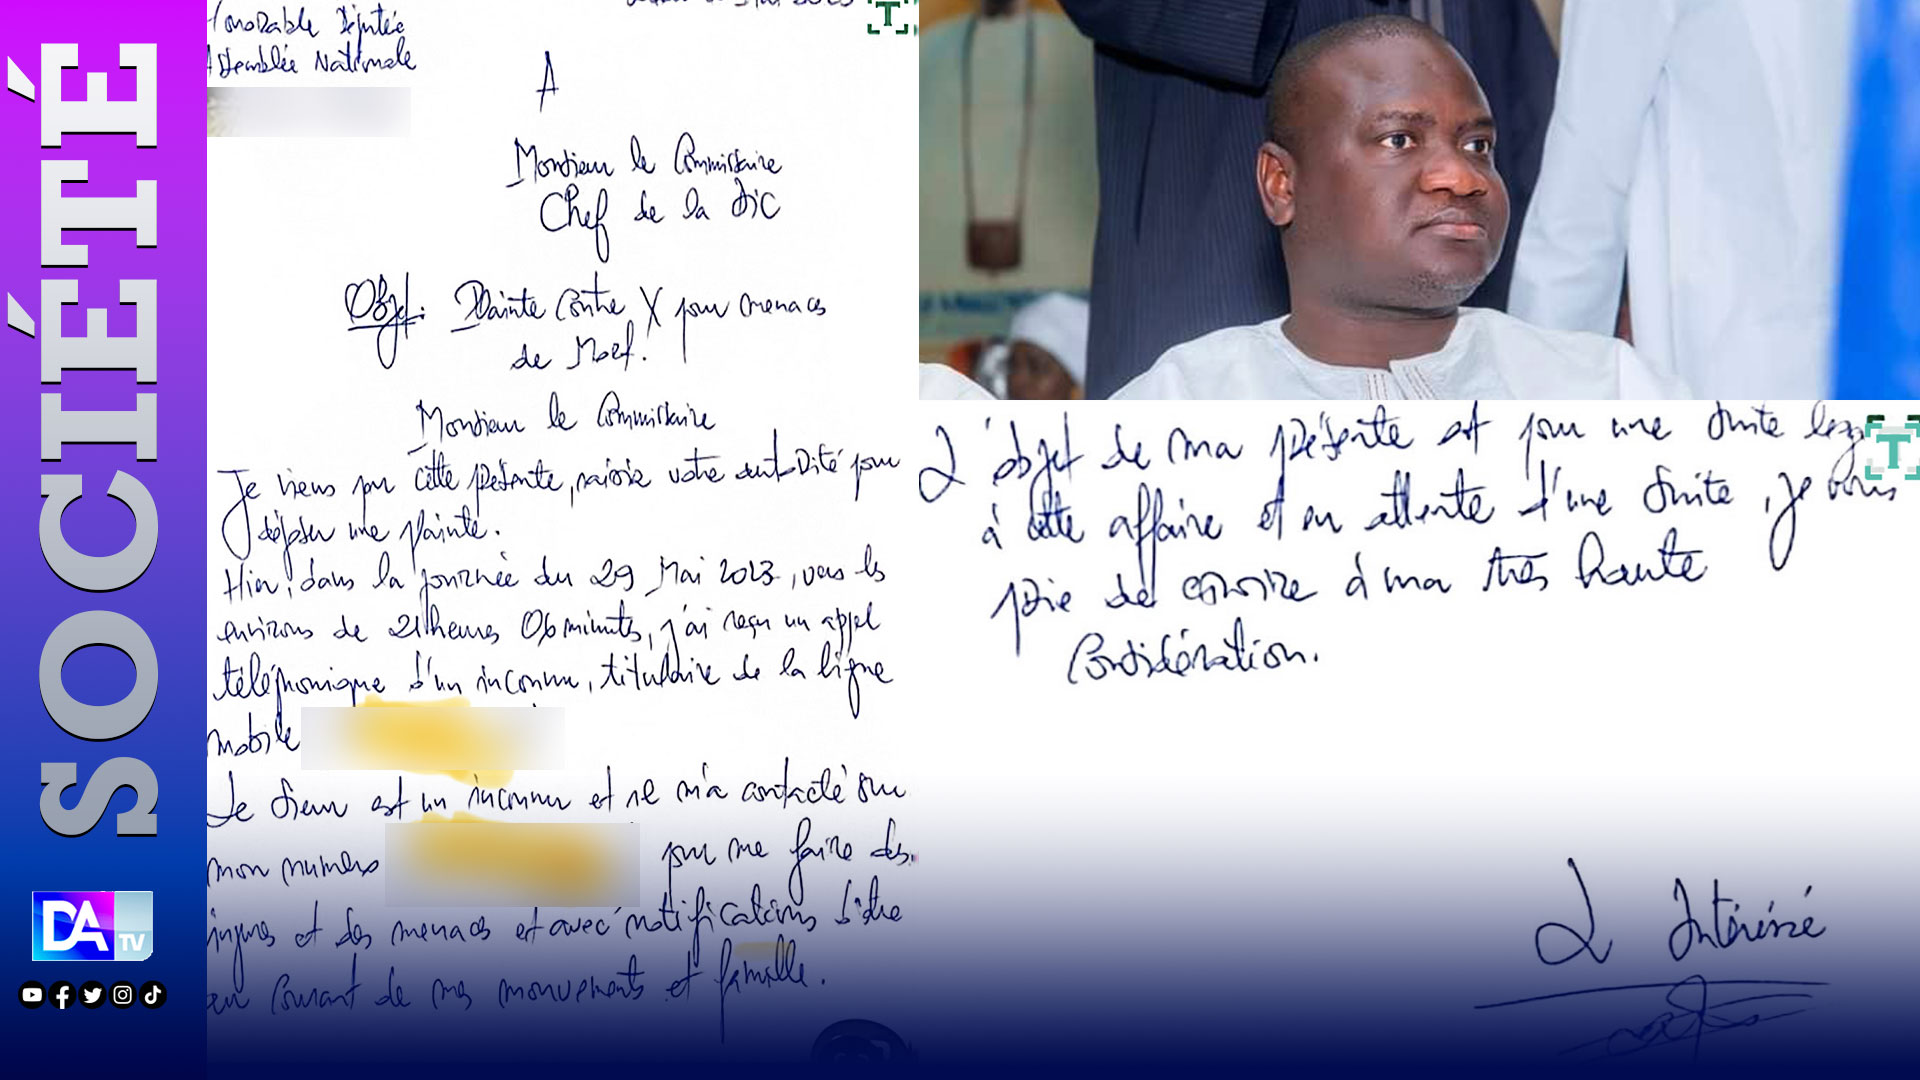 SOCIÉTÉ
DA TV
Honorable Députée
Assemblée Nationale
A
Monsieur le Commissaire
Chef de la DIC
Objet: Plainte Contre X pour menaces
de Mort.
Monsieur le Commissaire
Je viens par cette présente, saisir votre autorité pour
déposer une plainte.
Hier, dans la journée du 29 Mai 2023, vers les
environs de 21 heures 06 minutes, j'ai reçu un appel
téléphonique d'un inconnu, titulaire de la ligne
mobile
Le sieur est un inconnu et il m'a contacté sur
mon numéro
pour me faire des
injures et des menaces et avec notifications d'être
au courant de mes mouvements et famille.
T
L'objet de ma présente est pour une suite
à cette affaire et en attente d'une suite, je vous
prie de croire à ma très haute
Considération.
L'Intéressé